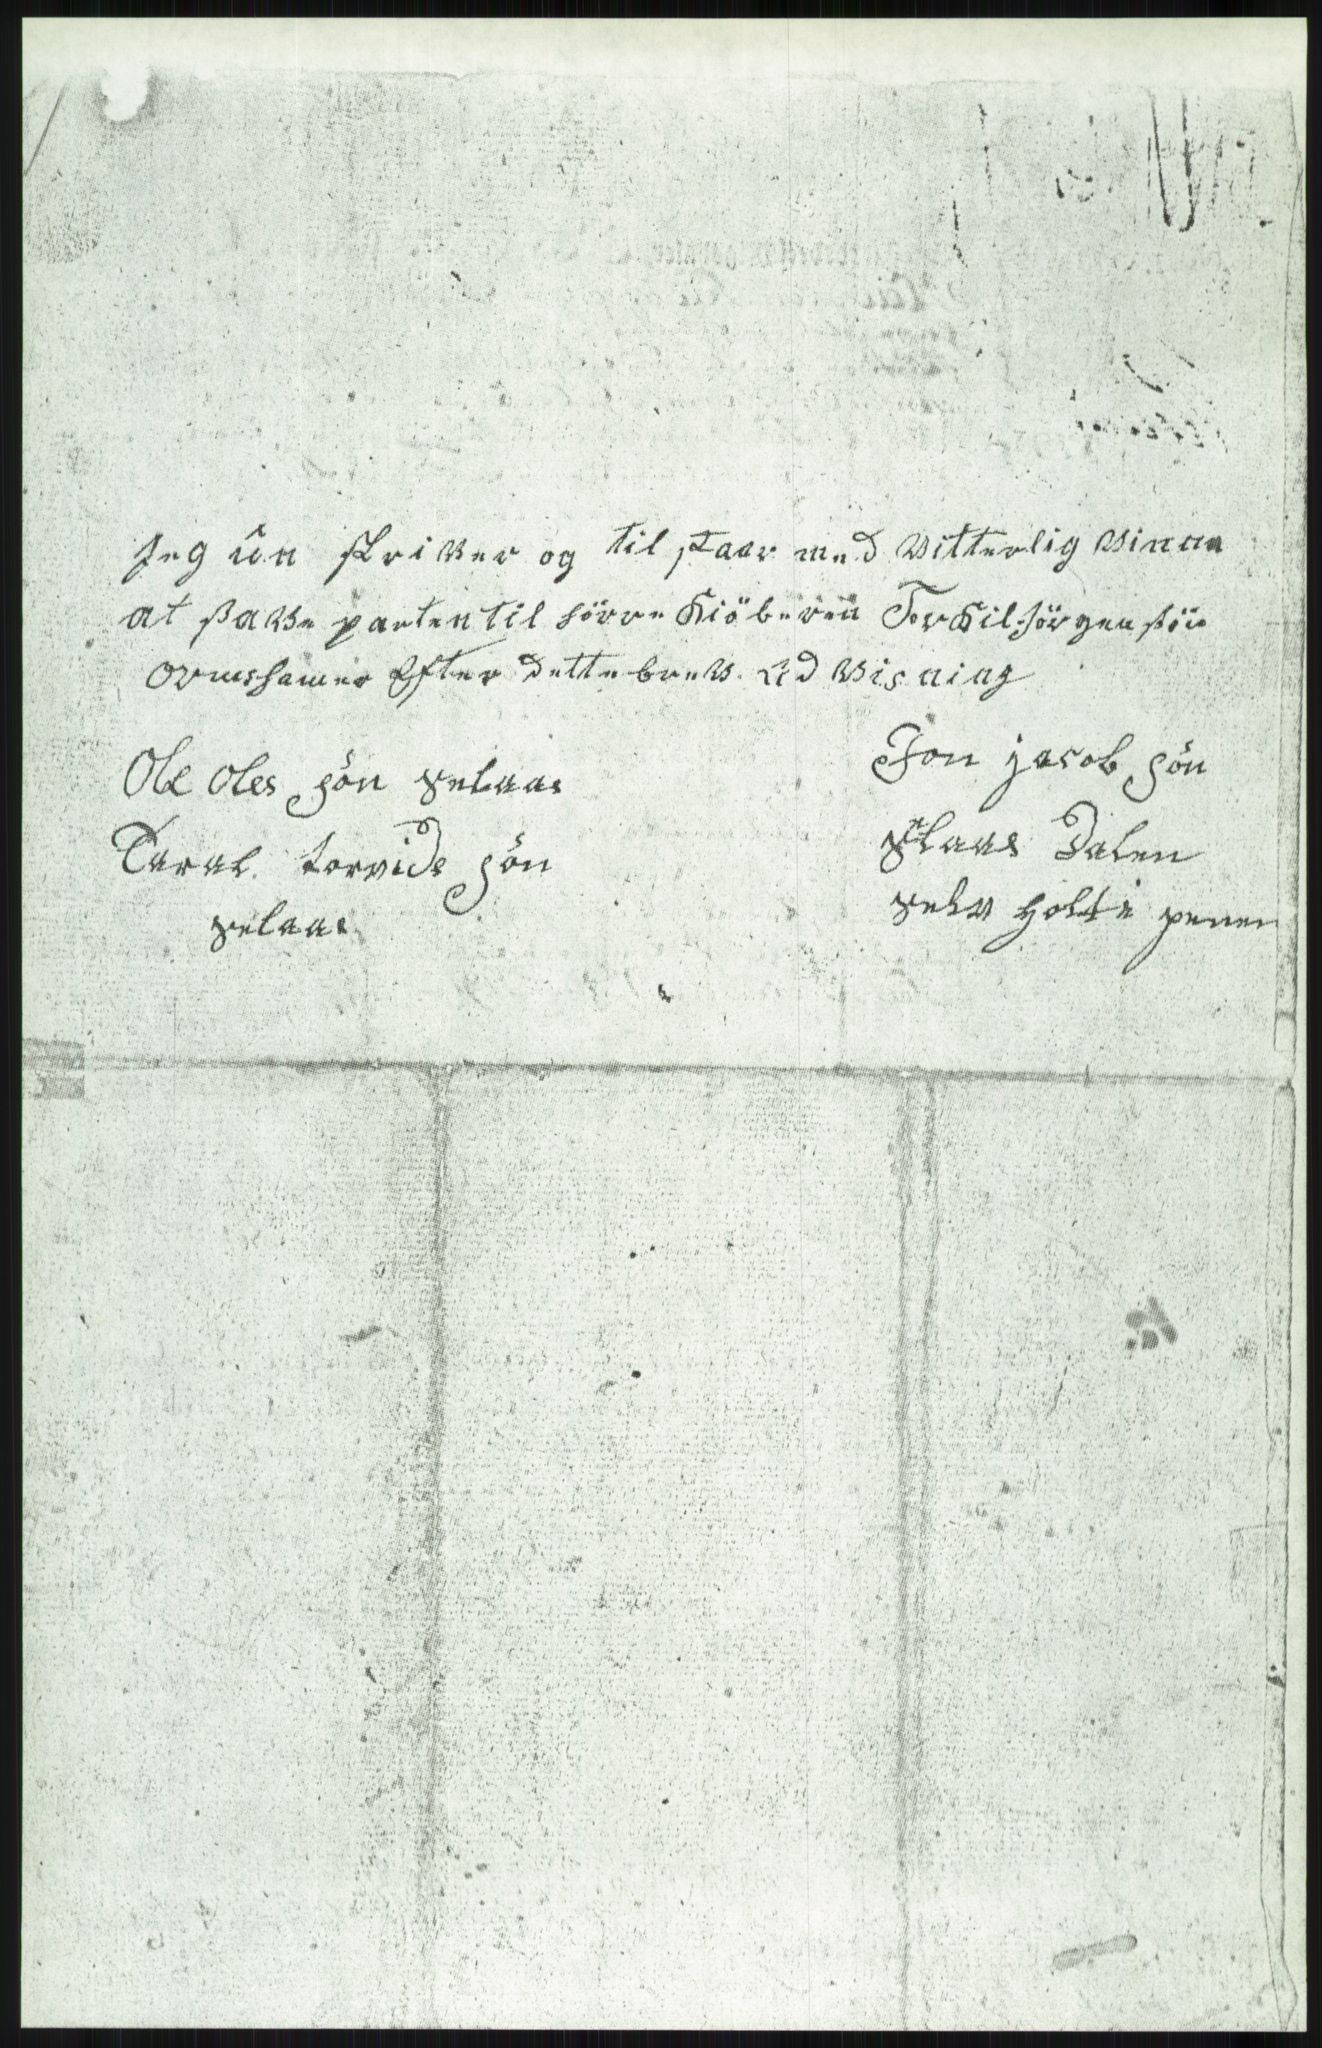 Jeg ûn skriver og til staar med vitterlig vinnu
at save parten til hörre Kiöberen Torkil Jörgensön
ormshamer Efter dette brev ud visning
Ole Oles sön selaas
Taral torvids sön
selaas
Jon jacob sön
slaas Dalen
selv holte penen